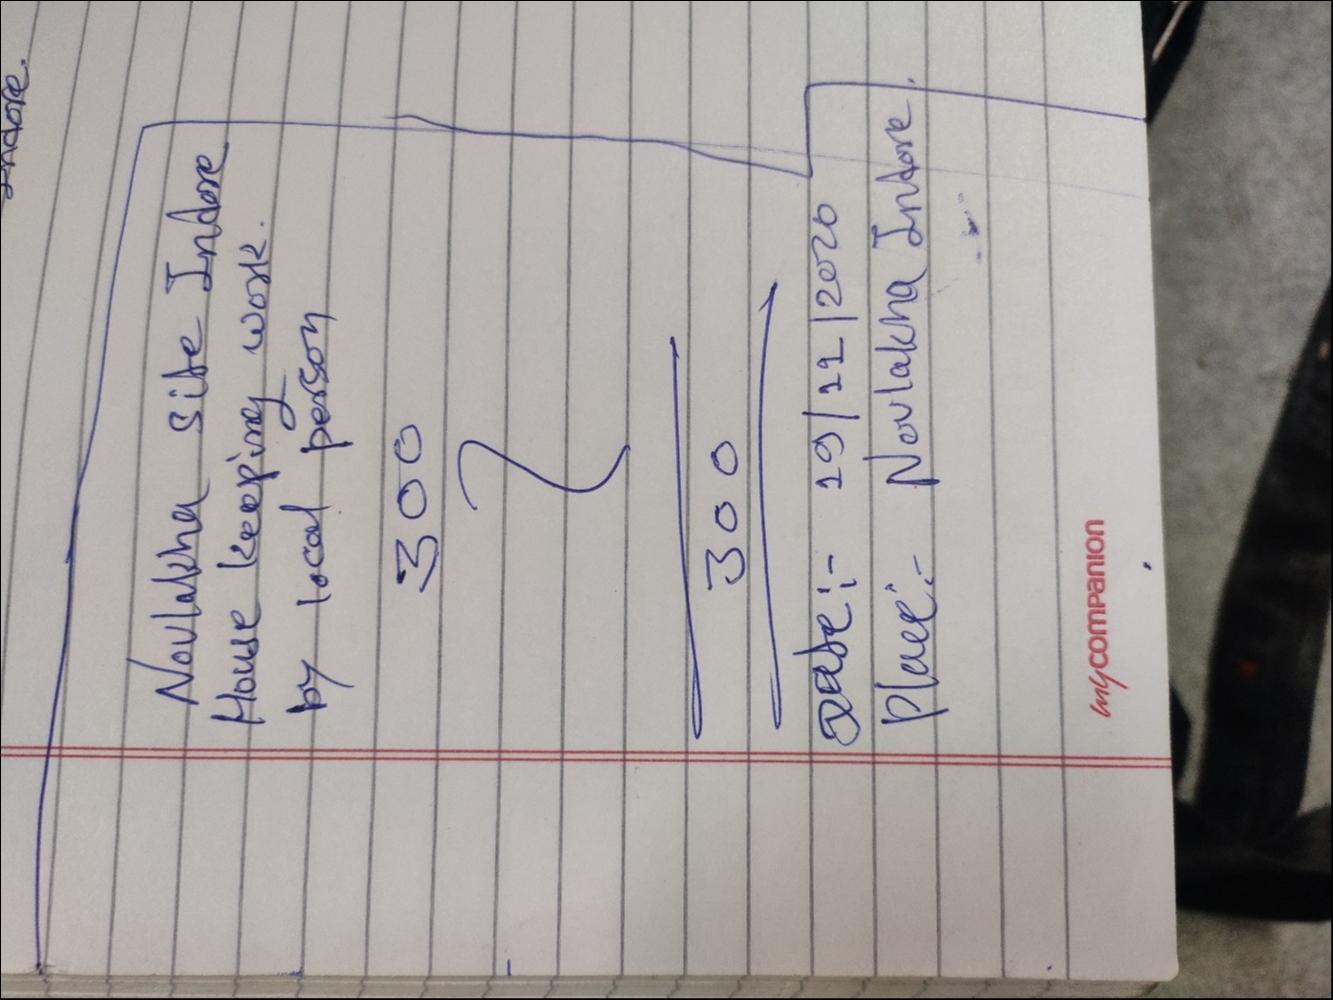 Indore.
Novlakha site Indore
House keeping work.
by local person
300
300
Date:- 19/11/2020
Place:- Novlakha Indore.
mycompanion